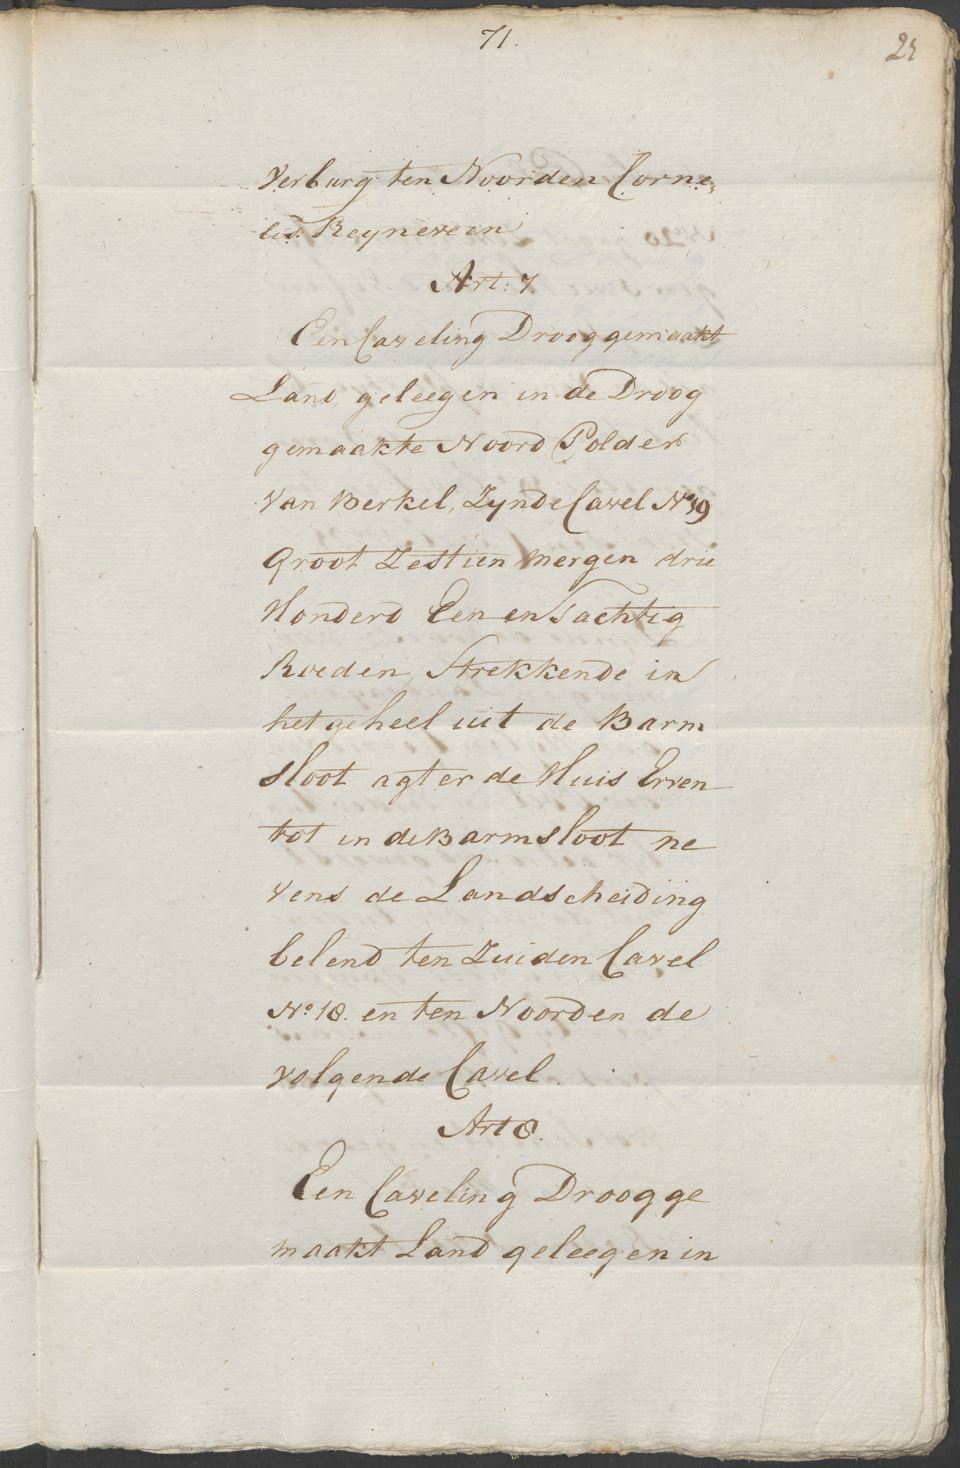 71.
Verburg ten Noorden Corne,
lis Reyneveen
Art: 7
Een Caveling Drooggemaakt
Land geleegen in de Droog
gemaakte Noord Polder
van Berkel, Zynde Cavel No 19
Groot Zestien Mergen drie
Honderd Een en Tachtig
Roeden, Strekkende in
het geheel uit de Barm
sloot agter de Huis Erven
tot in de Barmsloot ne
vens de Landscheiding
belend ten Zuiden Cavel
No 18. en ten Noorden de
volgende Cavel.
Art 8.
Een Caveling Droogge
maakt Land geleegen in